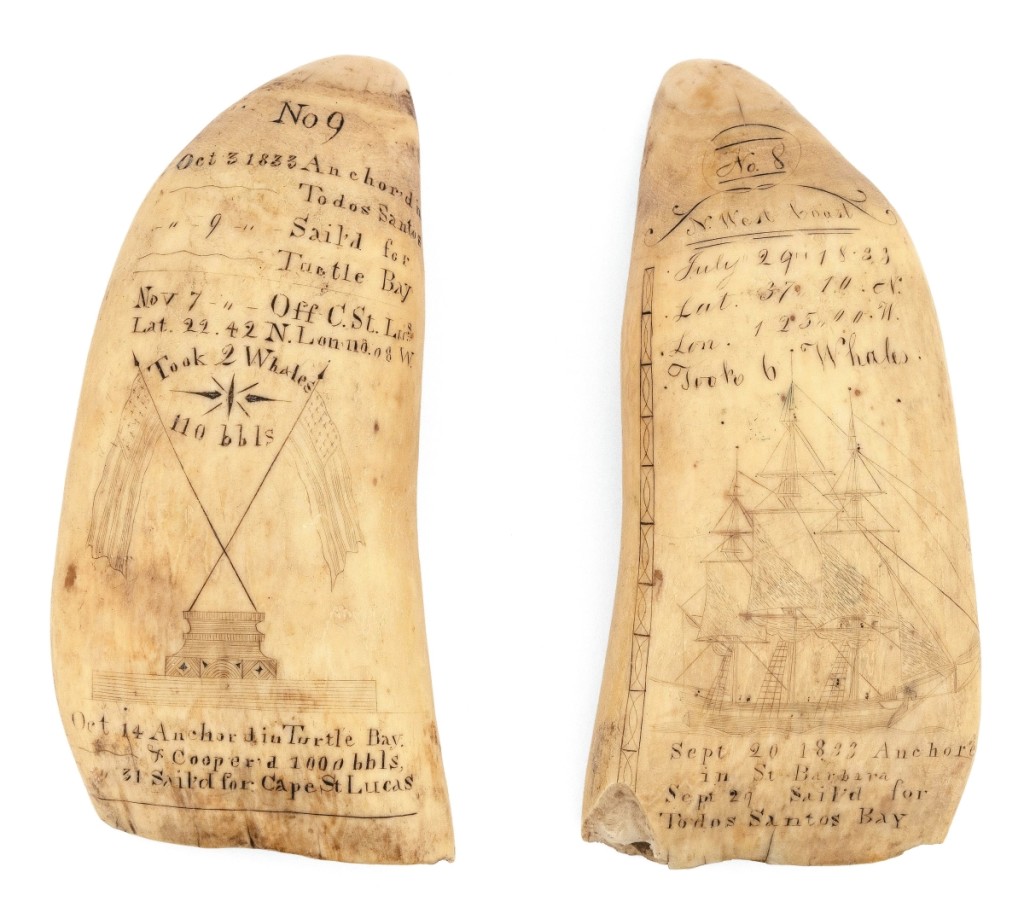 No 9
Oct 3 1833 Anchor.d in
Todos Santos
„ 9 „ Sail'd for
Turtle Bay
Nov 7 „ Off C. St. Lucas
Lat. 22.42 N. Lon. 110.08 W.
Took 2 Whales
110 bbls
Oct 14 Anchor d in Turtle Bay.
& Cooper'd 1000 bbls,
31 Sail'd for Cape St Lucas
No. 8
N. West Coast
July 29. 1833
Lat. 37.10. N.
Lon. 125.00. W.
Took 6 Whales.
Sept 20 1833 Anchor'd
in St Barbara
Sept 29 Sail'd for
Todos Santos Bay